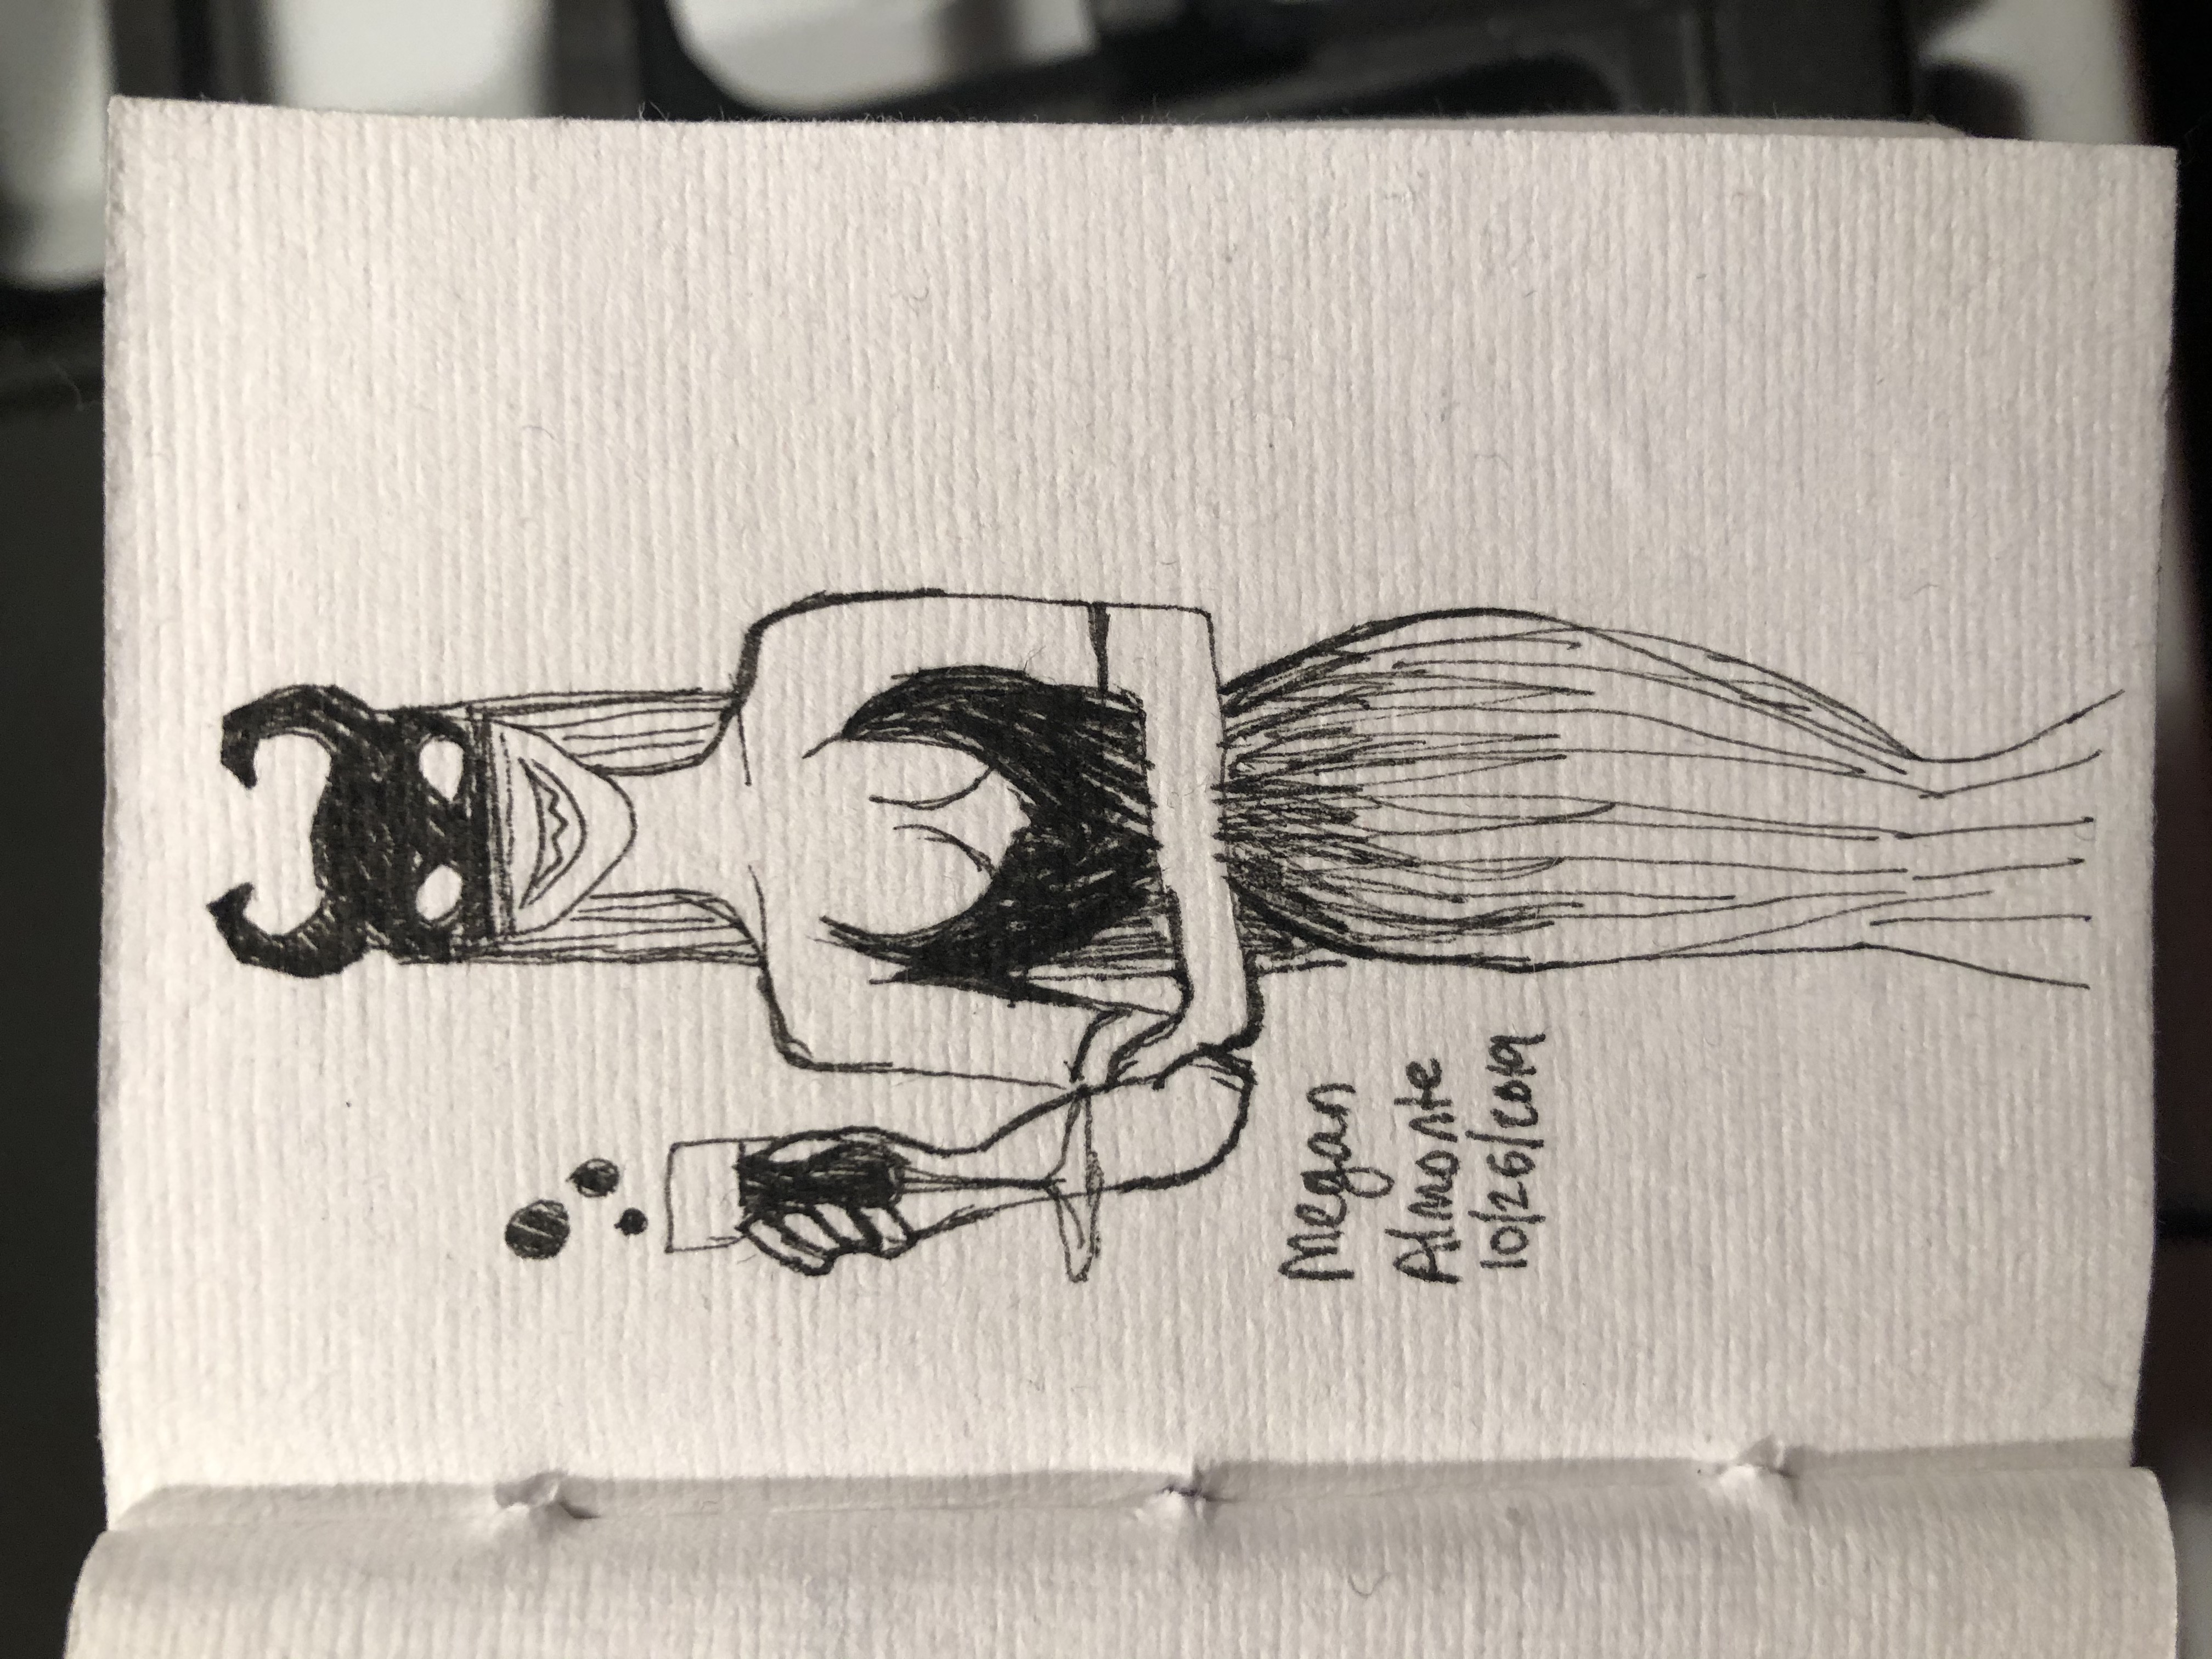 Megan
Almonte
10/26/2019